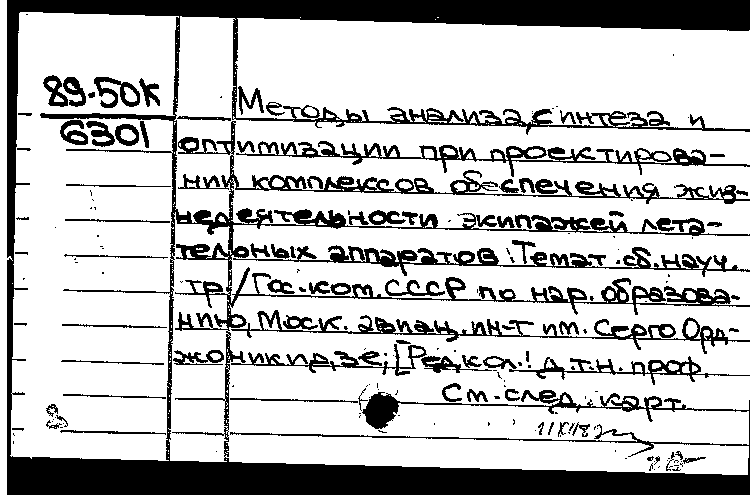 89-50К
6301
Методы анализа, синтеза и
оптимизации при проектирова-
нии комплексов обеспечения жиз-
недеятельности экипажей лета-
тельных аппаратов: Темат. сб. науч.
тр. / Гос. ком. СССР по нар. образова-
нию, Моск. авиац. ин-т им. Серго Орд-
жоникидзе; [Редкол.: д.т.н. проф.
См. след. карт.